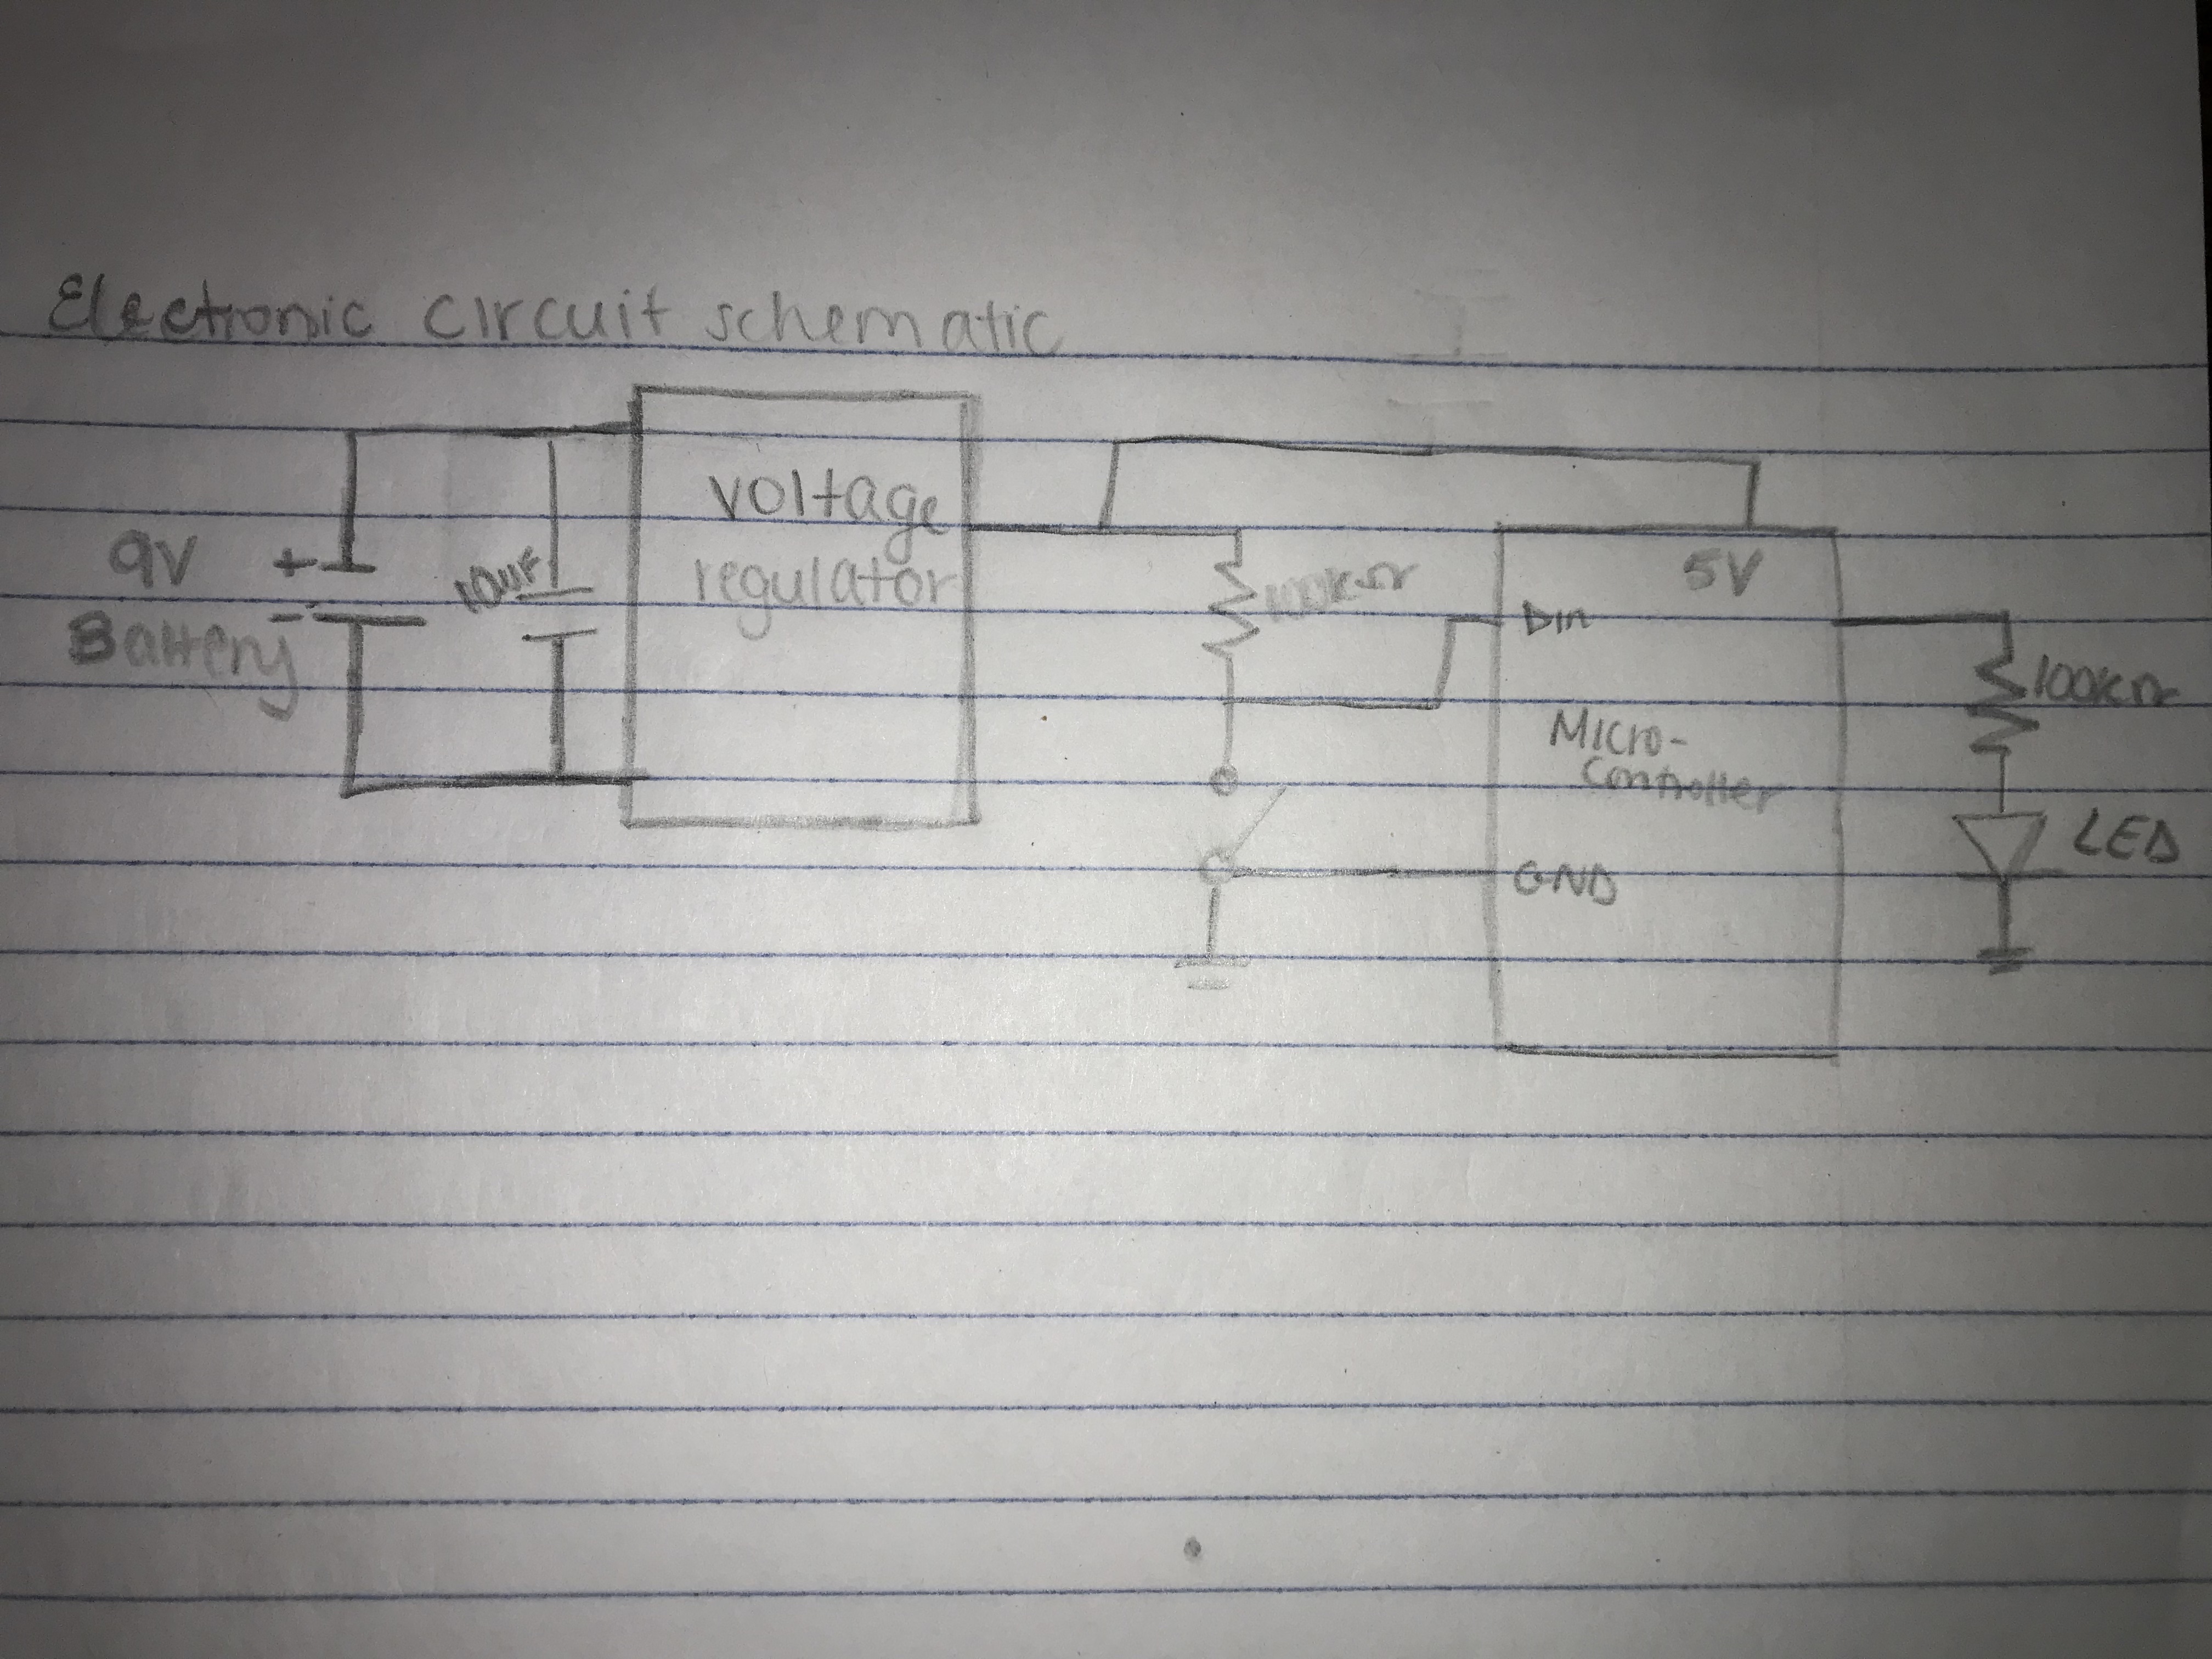 Electronic circuit schematic
9V
Battery
+
-
10uF
voltage
regulator
100KΩ
Din
5V
Micro-
controller
GND
100KΩ
LED